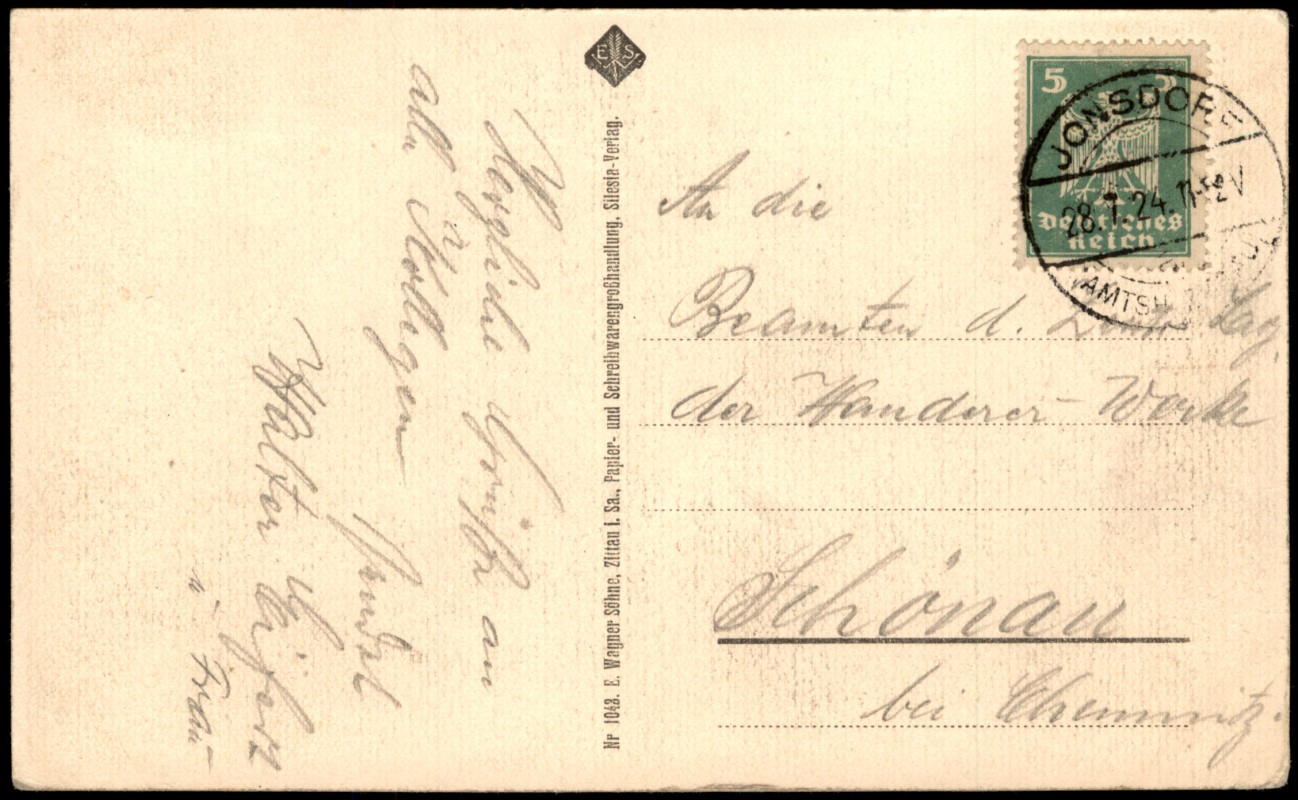 Herzliche Grüße an
alle Kollegen
sendet
Walter
u. Frau
E S
Nr 1043. E. Wagner Söhne, Zittau i. Sa., Papier- und Schreibwarengroßhandlung. Silesia-Verlag.
5 5
Deutsches
Reich
JONSDORF
28. 24. 11-12 V
AMTSH
An die
Beamten d.
der Wanderer-Werke
Schönau
bei Chemnitz.